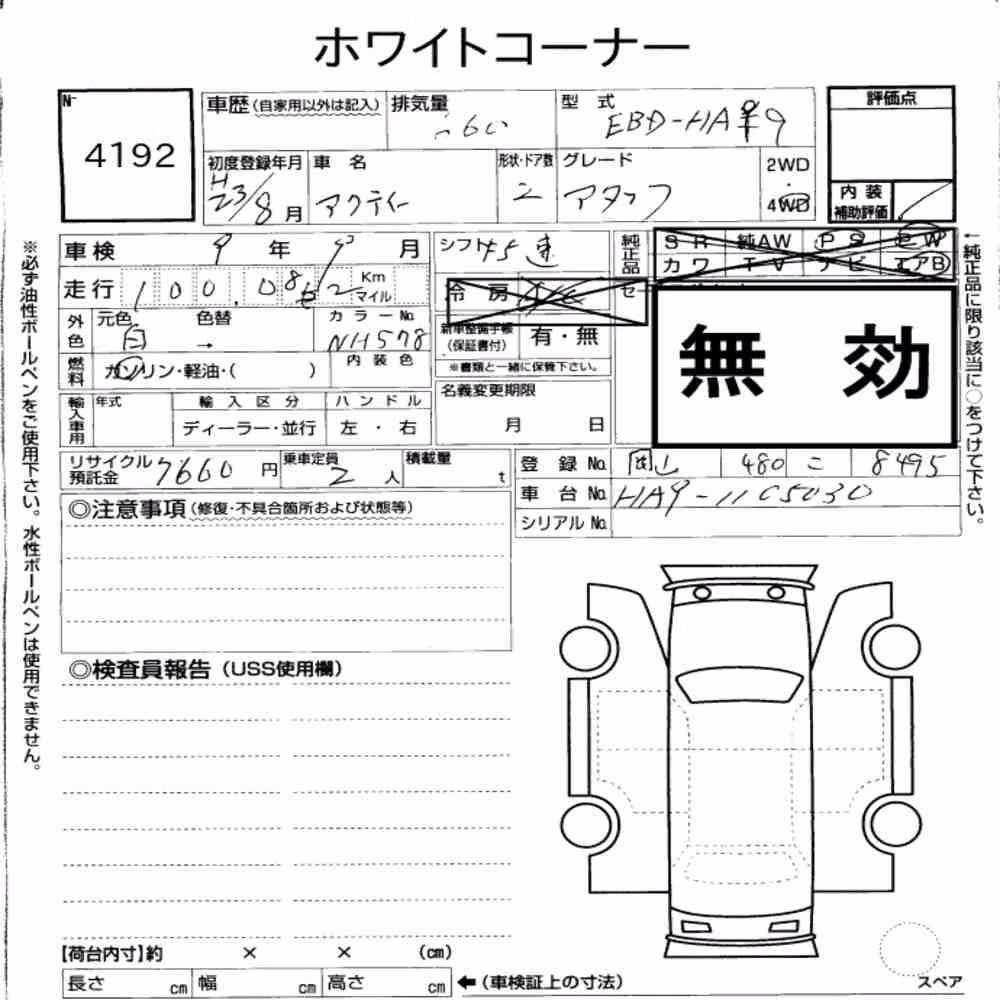 ホワイトコーナー
No
4192
車歴(自家用以外は記入)
排気量 660
型式 EBD-HA 9
評価点
初度登録年月 H23/8月
車名 アクティー
形状・ドア数 2
グレード アタック
2WD
・
4WD
内装
補助評価
車検 年 月
シフト 5速
純正品
SR 純AW PS PW
カワ TV ナビ エアB
走行 100.08 Km マイル
冷房
無 効
外色 元色 白 色替 →
カラーNo. NH578
内装色
新車整備手帳
(保証書付) 有・無
※書類と一緒に保管下さい。
燃料 ガソリン・軽油・( )
輸入車用 年式 輸入区分 ハンドル
ディーラー・並行 左・右
名義変更期限
月 日
リサイクル預託金 7660円
乗車定員 2人
積載量 t
登録No. 岡山 480 こ 8495
車台No. HA9-1105030
シリアルNo.
◎注意事項(修復・不具合箇所および状態等)
◎検査員報告(USS使用欄)
【荷台内寸】約 × × (cm)
長さ cm 幅 cm 高さ cm ←(車検証上の寸法)
スペア
※必ず油性ボールペンをご使用下さい。水性ボールペンは使用できません。
←純正品に限り該当に○をつけて下さい。